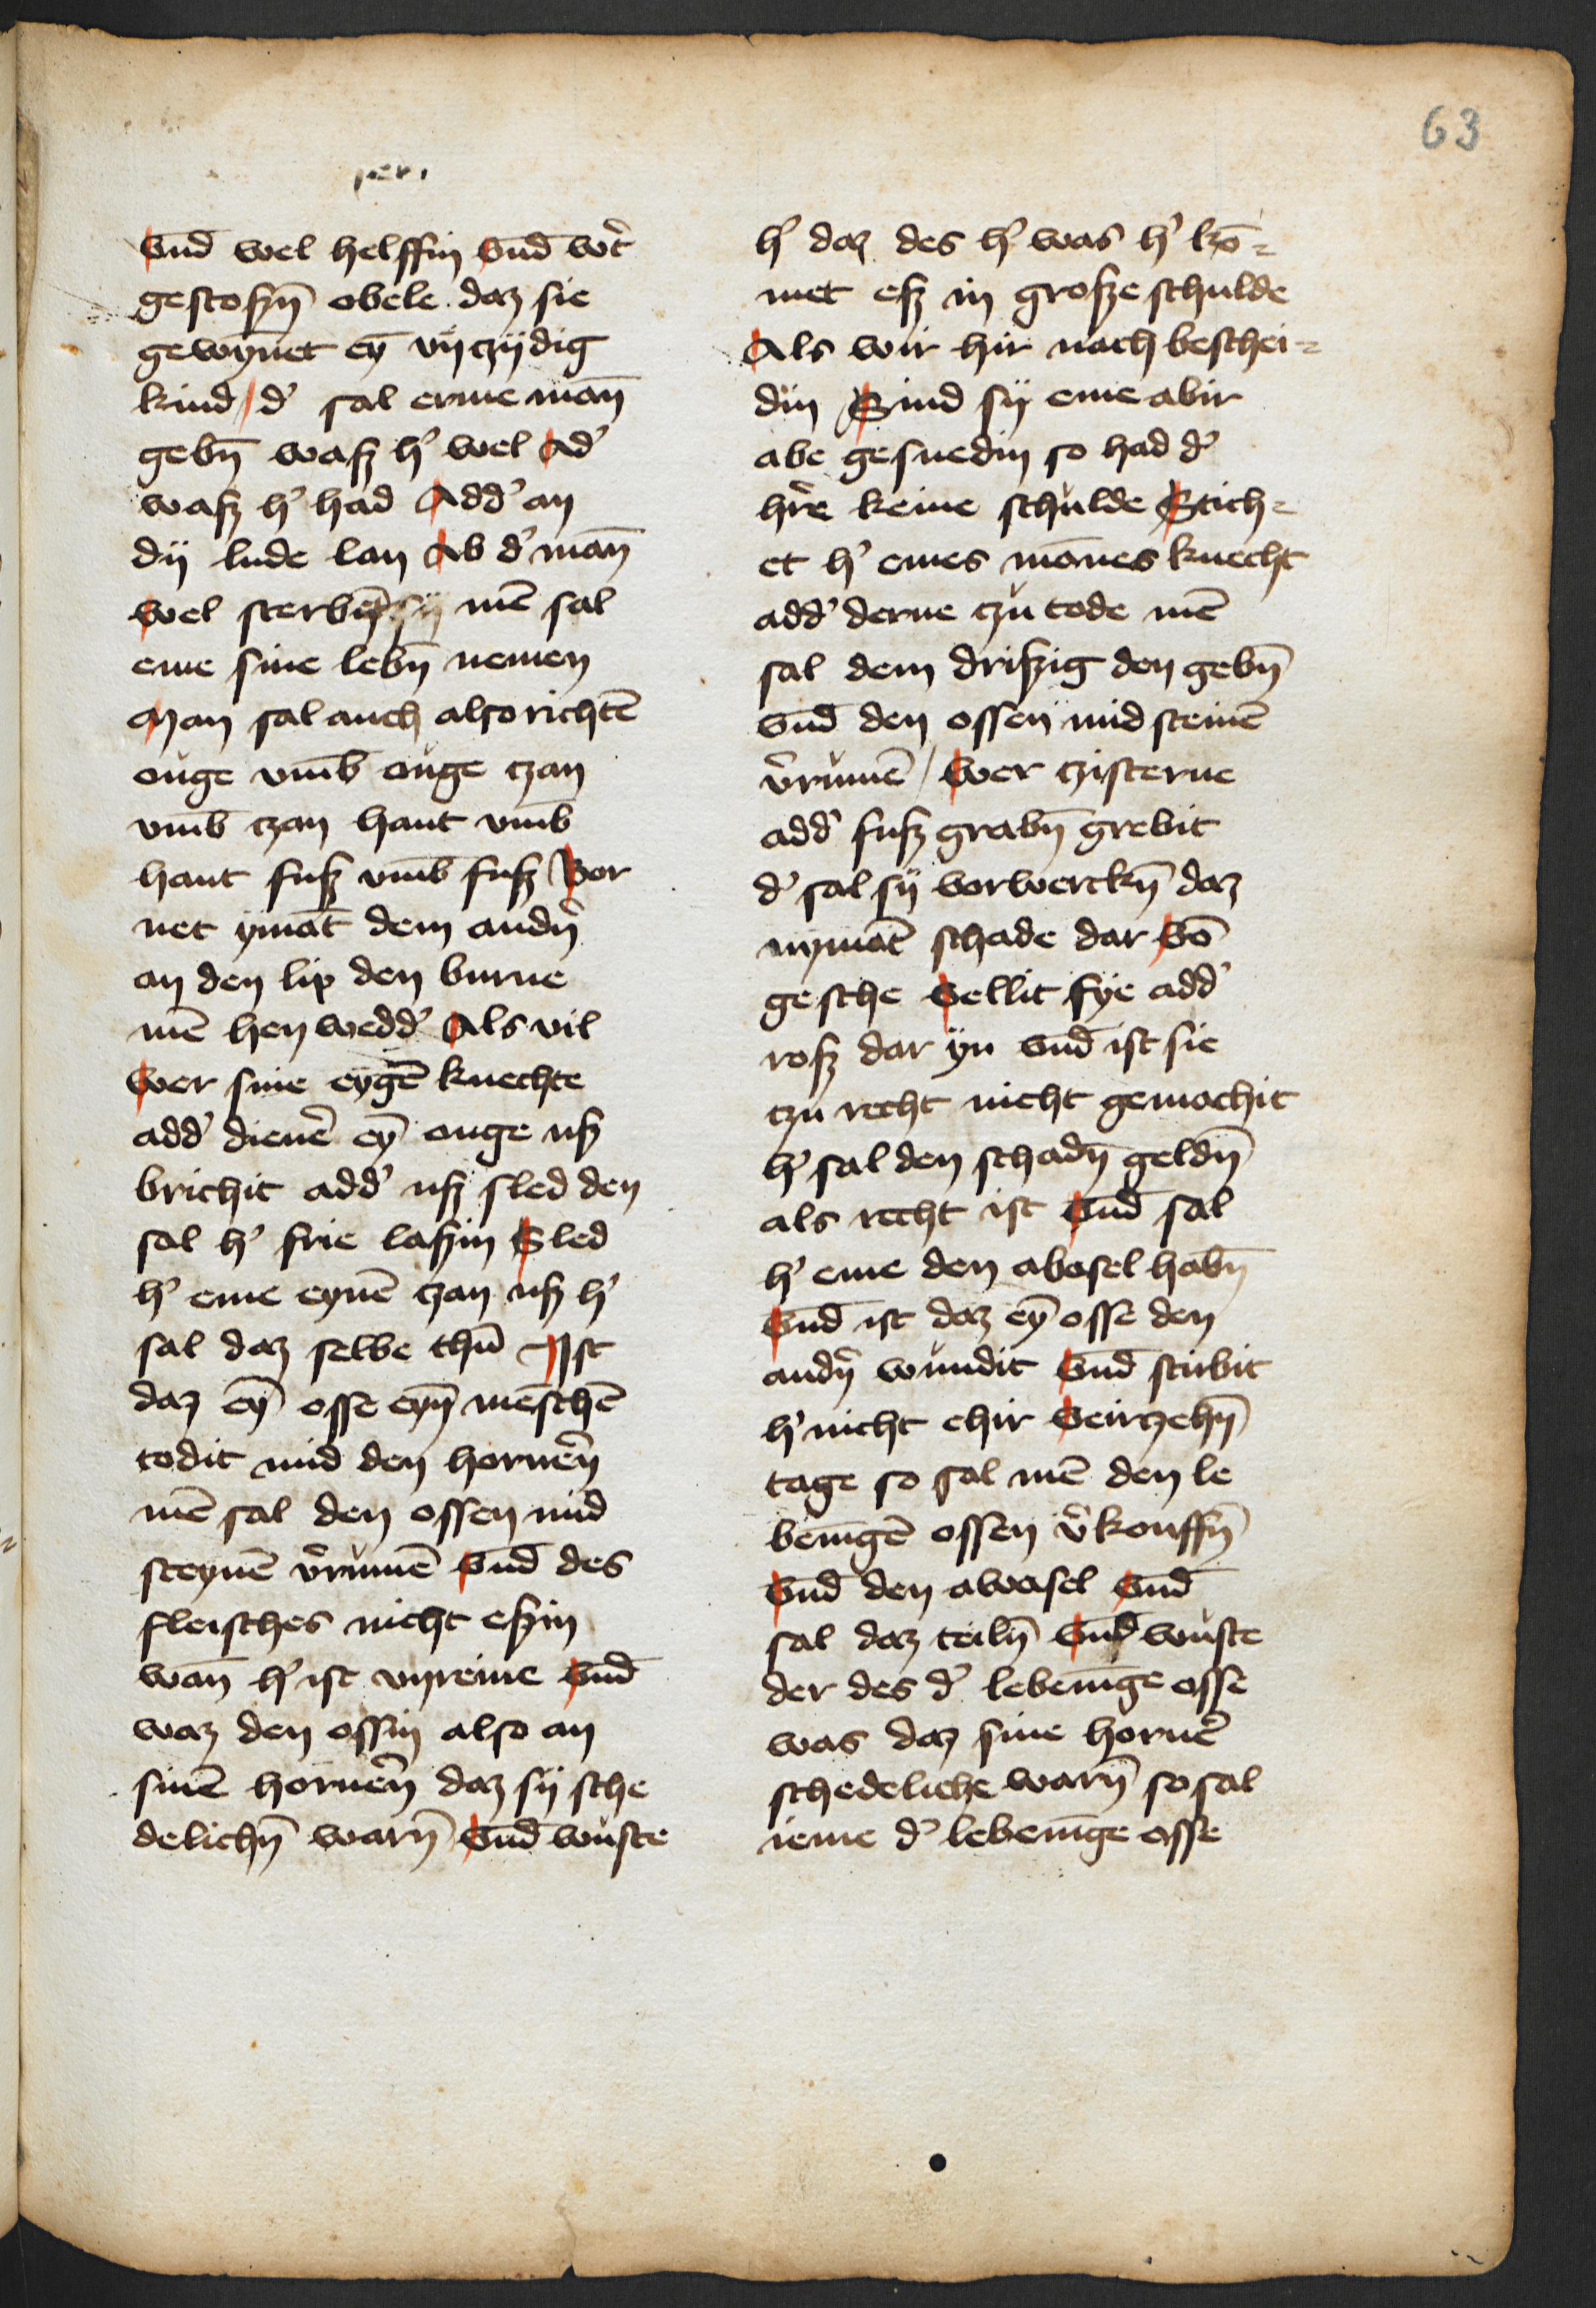 63
Vnd̄ wel helffin Vnd̄ wͦt̕
gestoszyn̄ obele daz sie
gewynnet ey̅ vn̄czijdig
kind / d̕ sal erme man̄
gebn̄ wasz h̕ wel Ad̕
wasz h̕ had Add̕ an
dij lude lan Ab d̕ man̄
Wel sterben̄ me̅ sal
eme sine lebn̄ nemen
Man sal auch also richte̅
ouge vm̄b ouge czan
vm̄b czan hant vm̄b
hant fusz vm̄b fusz Bor
net yma̅t dem andn̕
an den lip den burne
me̅ hen wedd̕ Als vil
Wer sine eyge̅ knechte
add̕ diene̕ ey̅ ouge usz
brichit add̕ usz sled den
sal h̕ frie laszin Sled
h̕ eme eyne̅ czan usz h̕
sal daz selbe thu̅ Ist
daz ey̅ osse eyn̄ me̅sche̅
todit mid den hornen̄
me̅ sal den ossen mid
steyne̅ v̕rume̅ Vnd̄ des
fleisches nicht eszin
wan̄ h̕ ist vnreine Vnd̄
waz den ossin also an
sine̅ hornen̄ daz sij sche
delichn̄ warn̄ Vnd̄ wuste
h̕ daz des h̕ was h̕ ko̅-
met esz in grosze schulde
Als wir hir nach beschei-
din Sind sij eme abir
abe gesnedin so had d̕
hr̕e keine schulde Stich-
et h̕ eines ma̅nes knecht
add̕ derne czu tode me̅
sal dem driszig den gebn̄
Vnd̄ den ossen mid steine̅
v̕rume̅ / Wer czisterne
add̕ fusz grabn̄ grebit
d̕ sal sij vorwerckn̄ daz
nyma̅t schade dar Vo̅
gesche Vellit fye add̕
rosz dar yn Vnd̄ ist sie
czu recht nicht gemachit
h̕ sal den schadn̄ geldn̄
als recht ist Vnd̄ sal
h̕ eme den abasel habn̄
Vnd̄ ist daz ey̅ osse den
andn̕ wundit Vnd̄ stirbit
h̕ nicht ehir Veirczehn̄
tage so sal me̅ den le
benige̅ ossen v̕kouffn̄
Vnd̄ den awasel Vnd̄
sal daz teiln̄ Vnd̄ wuste
der des d̕ lebenige osse
was daz sine horne̕
schedeliche warn̄ so sal
ieme d̕ lebenige osse